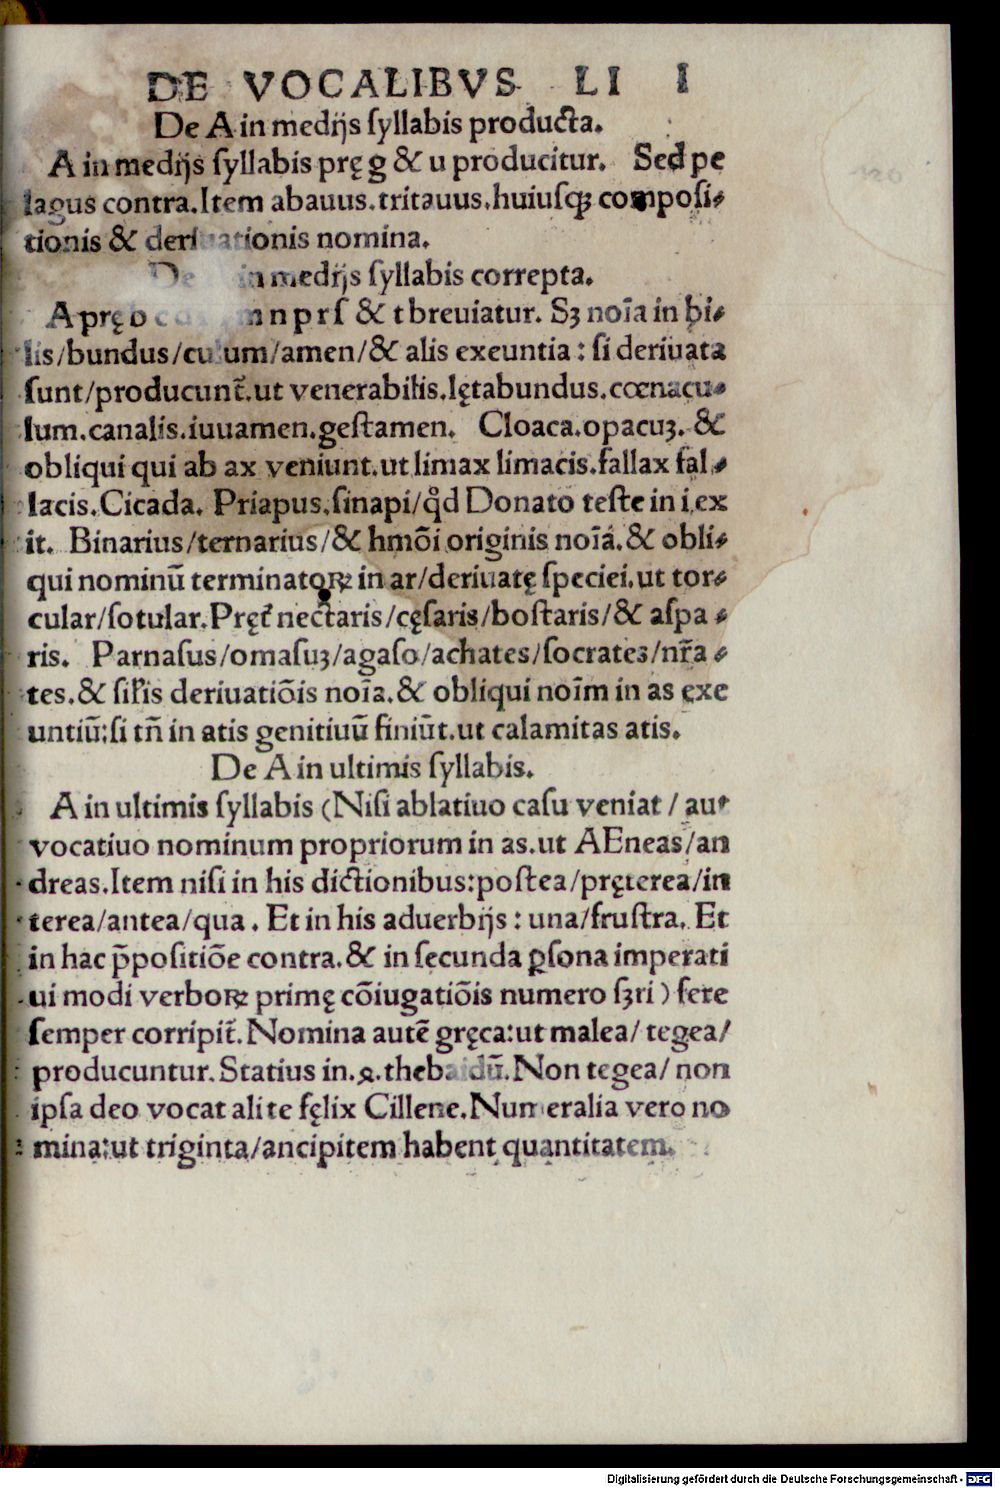 DE VOCALIBVS LI I
De A in medijs ſyllabis producta.
A in medijs ſyllabis prę g & u producitur. Sed pe
lagus contra. Item abauus. tritauus. huiuſqꝫ compoſi⸗
tionis & deriuationis nomina.
De in medijs ſyllabis correpta.
A prę b c d m n p r ſ & t breuiatur. Sꝫ noīa in bi⸗
lis/bundus/culum/amen/& alis exeuntia: ſi deriuata
ſunt/producunt̄. ut venerabilis. lętabundus. cœnacu⸗
lum. canalis. iuuamen. geſtamen. Cloaca. opacuꝫ. &
obliqui qui ab ax veniunt. ut limax limacis. fallax fal⸗
lacis. Cicada. Priapus. ſinapi/qd̄ Donato teſte in i ex
it. Binarius/ternarius/& hmōi originis noīa. & obli⸗
qui nominū terminatoꝝ in ar/deriuatę ſpeciei. ut tor⸗
cular/ſotular. Pręt̄ nectaris/cęſaris/boſtaris/& aſpa⸗
ris. Parnaſus/omaſuꝫ/agaſo/achates/ſocrates/nr̄a⸗
tes. & ſil̄is deriuatiōis noīa. & obliqui noīm in as exe
untiū: ſi tn̄ in atis genitiuū finiūt. ut calamitas atis.
De A in ultimis ſyllabis.
A in ultimis ſyllabis (Niſi ablatiuo caſu veniat / aut
vocatiuo nominum propriorum in as. ut AEneas/an
dreas. Item niſi in his dictionibus: poſtea/pręterea/in
terea/antea/qua. Et in his aduerbijs: una/fruſtra. Et
in hac p̄poſitiōe contra. & in ſecunda ꝑſona imperati
ui modi verboꝝ primę cōiugatiōis numero ſꝫri) fere
ſemper corripit̄. Nomina autē gręca: ut malea/ tegea/
producuntur. Statius in. 4. thebaidū. Non tegea/ non
ipſa deo vocat alite fęlix Cillene. Numeralia vero no
mina: ut triginta/ancipitem habent quantitatem.
Digitalisierung gefördert durch die Deutsche Forschungsgemeinschaft - DFG